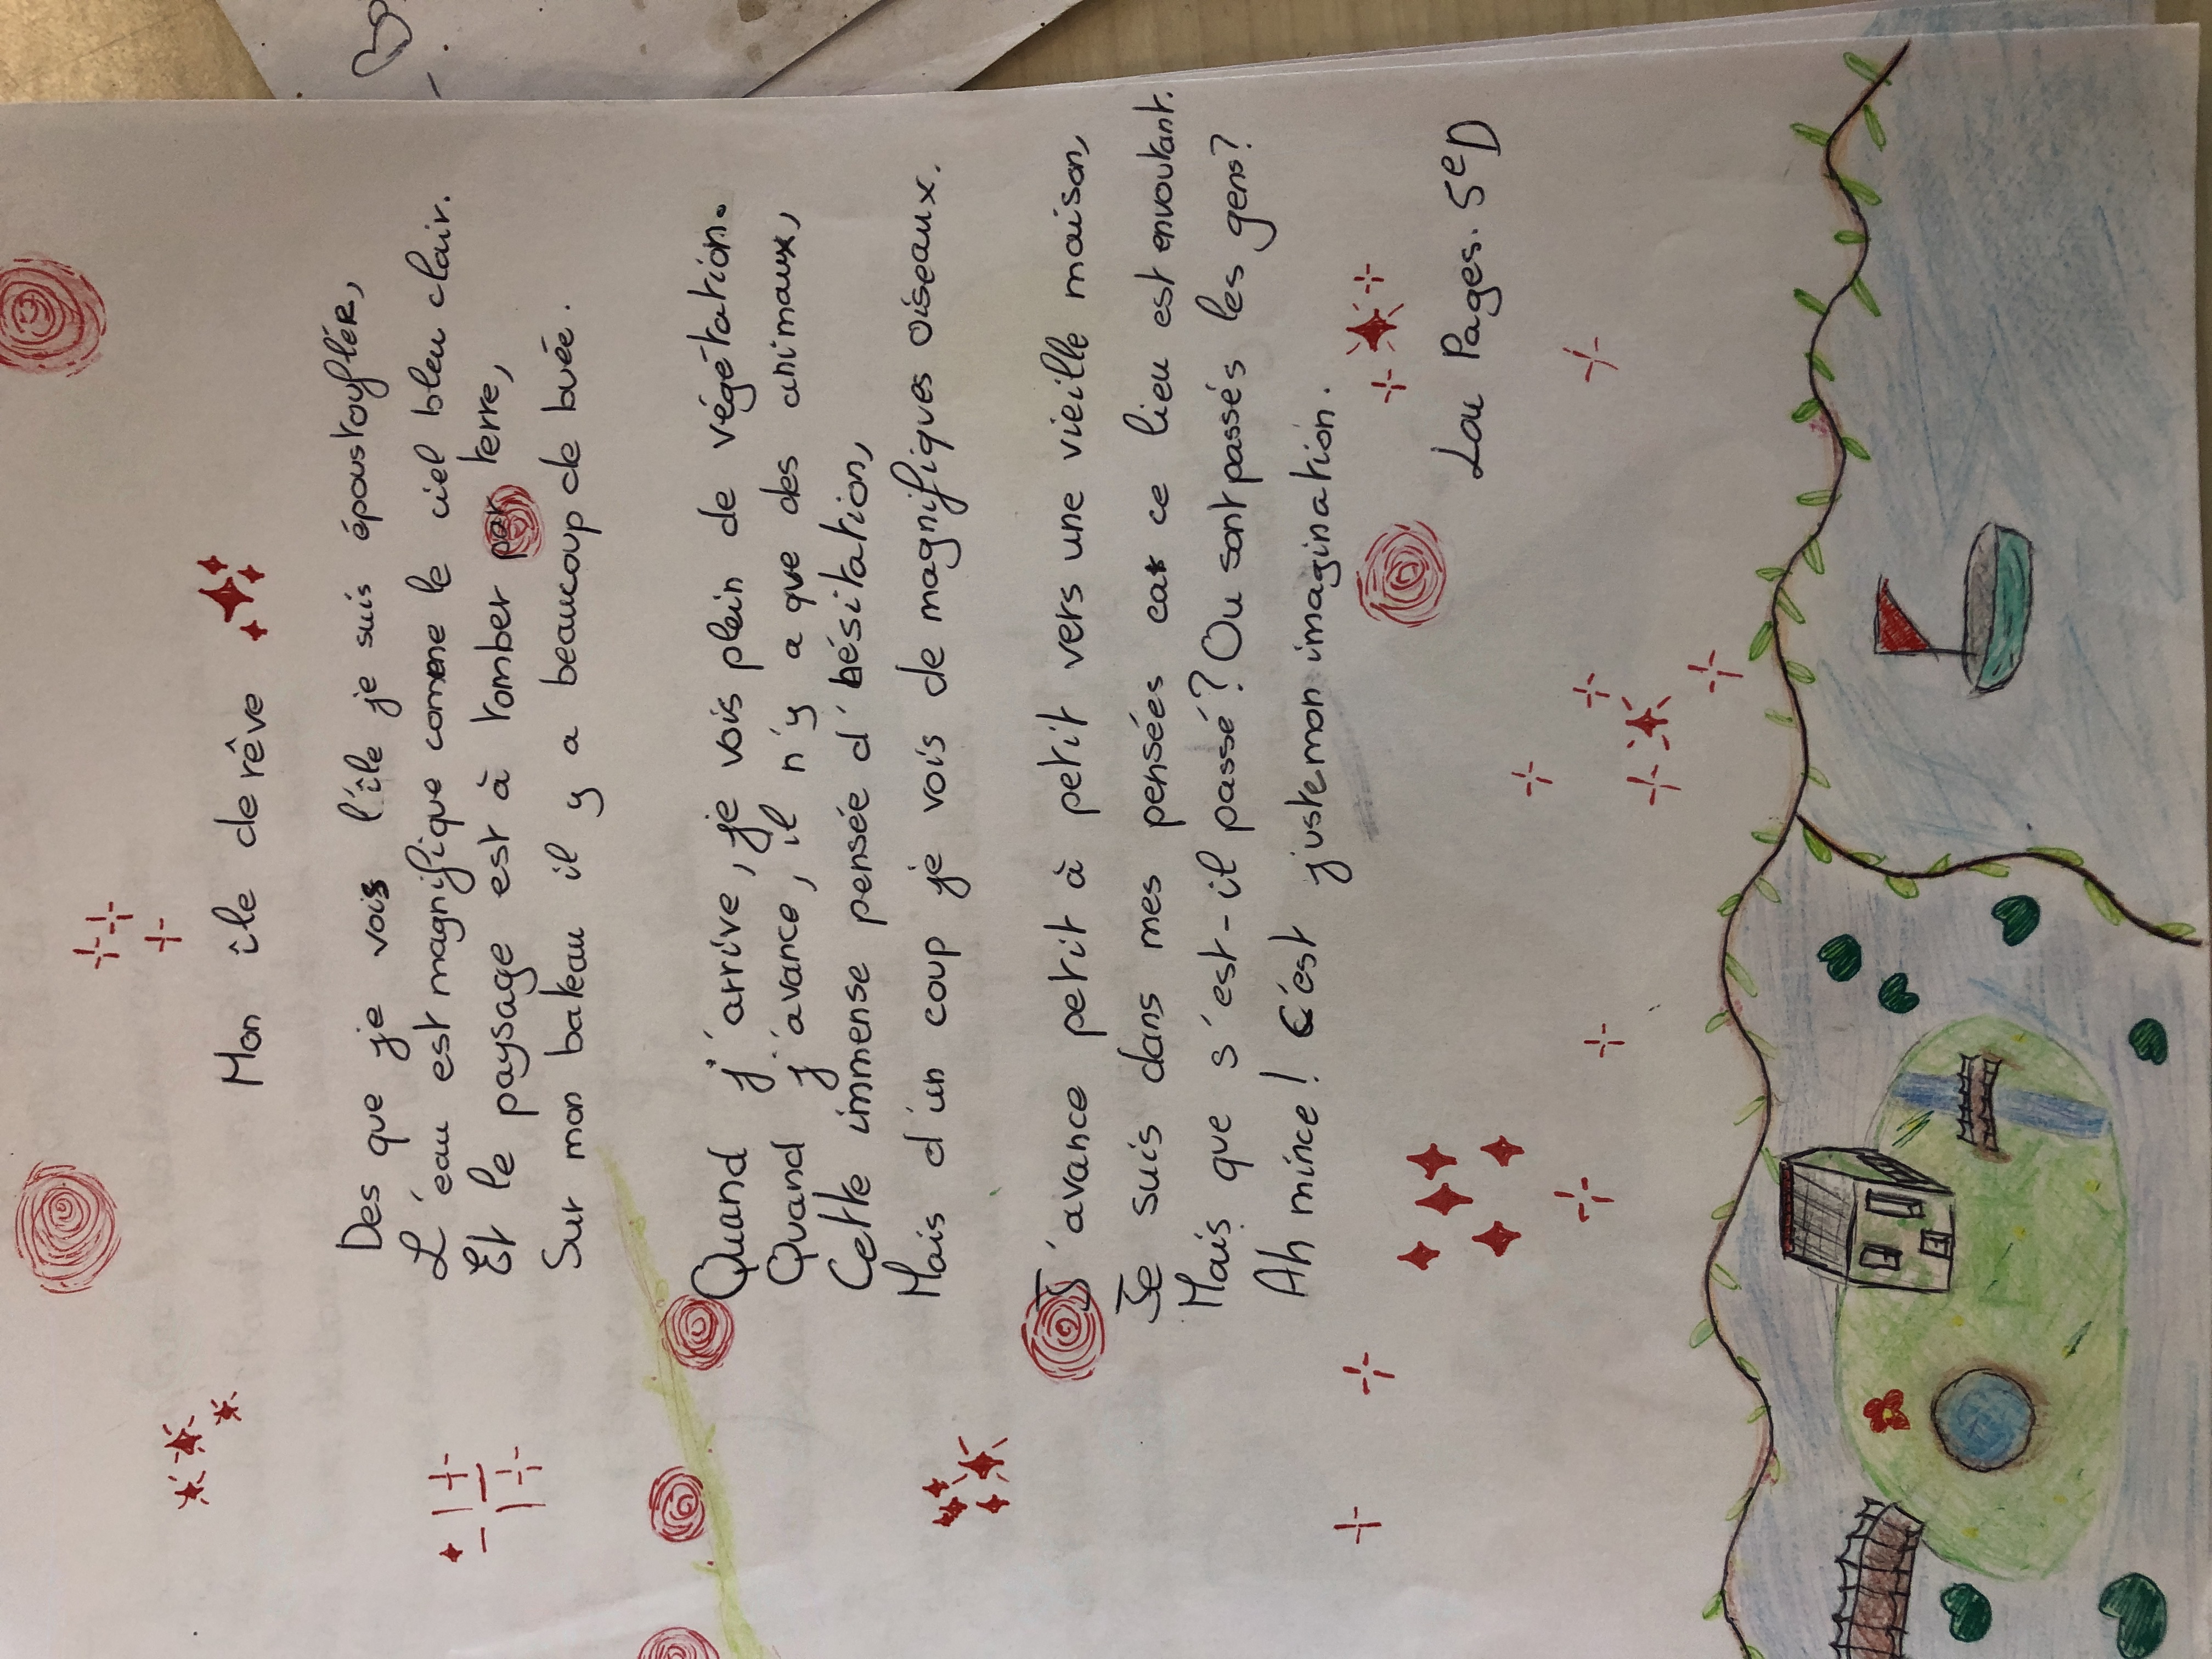 Mon île de rêve
Des que je vois l'île je suis époustoufler,
L'eau est magnifique comme le ciel bleu clair.
Et le paysage est à tomber par terre,
Sur mon bateau il y a beaucoup de buée.
Quand j'arrive, je vois plein de végétation.
Quand j'avance, il n'y a que des animaux,
Cette immense pensée d'hésitation,
Mais d'un coup je vois de magnifiques oiseaux.
J'avance petit à petit vers une vieille maison,
Je suis dans mes pensées car ce lieu est envoutant.
Mais que s'est-il passé? Ou sont passés les gens?
Ah mince! C'est juste mon imagination.
Lou Pages. 5eD